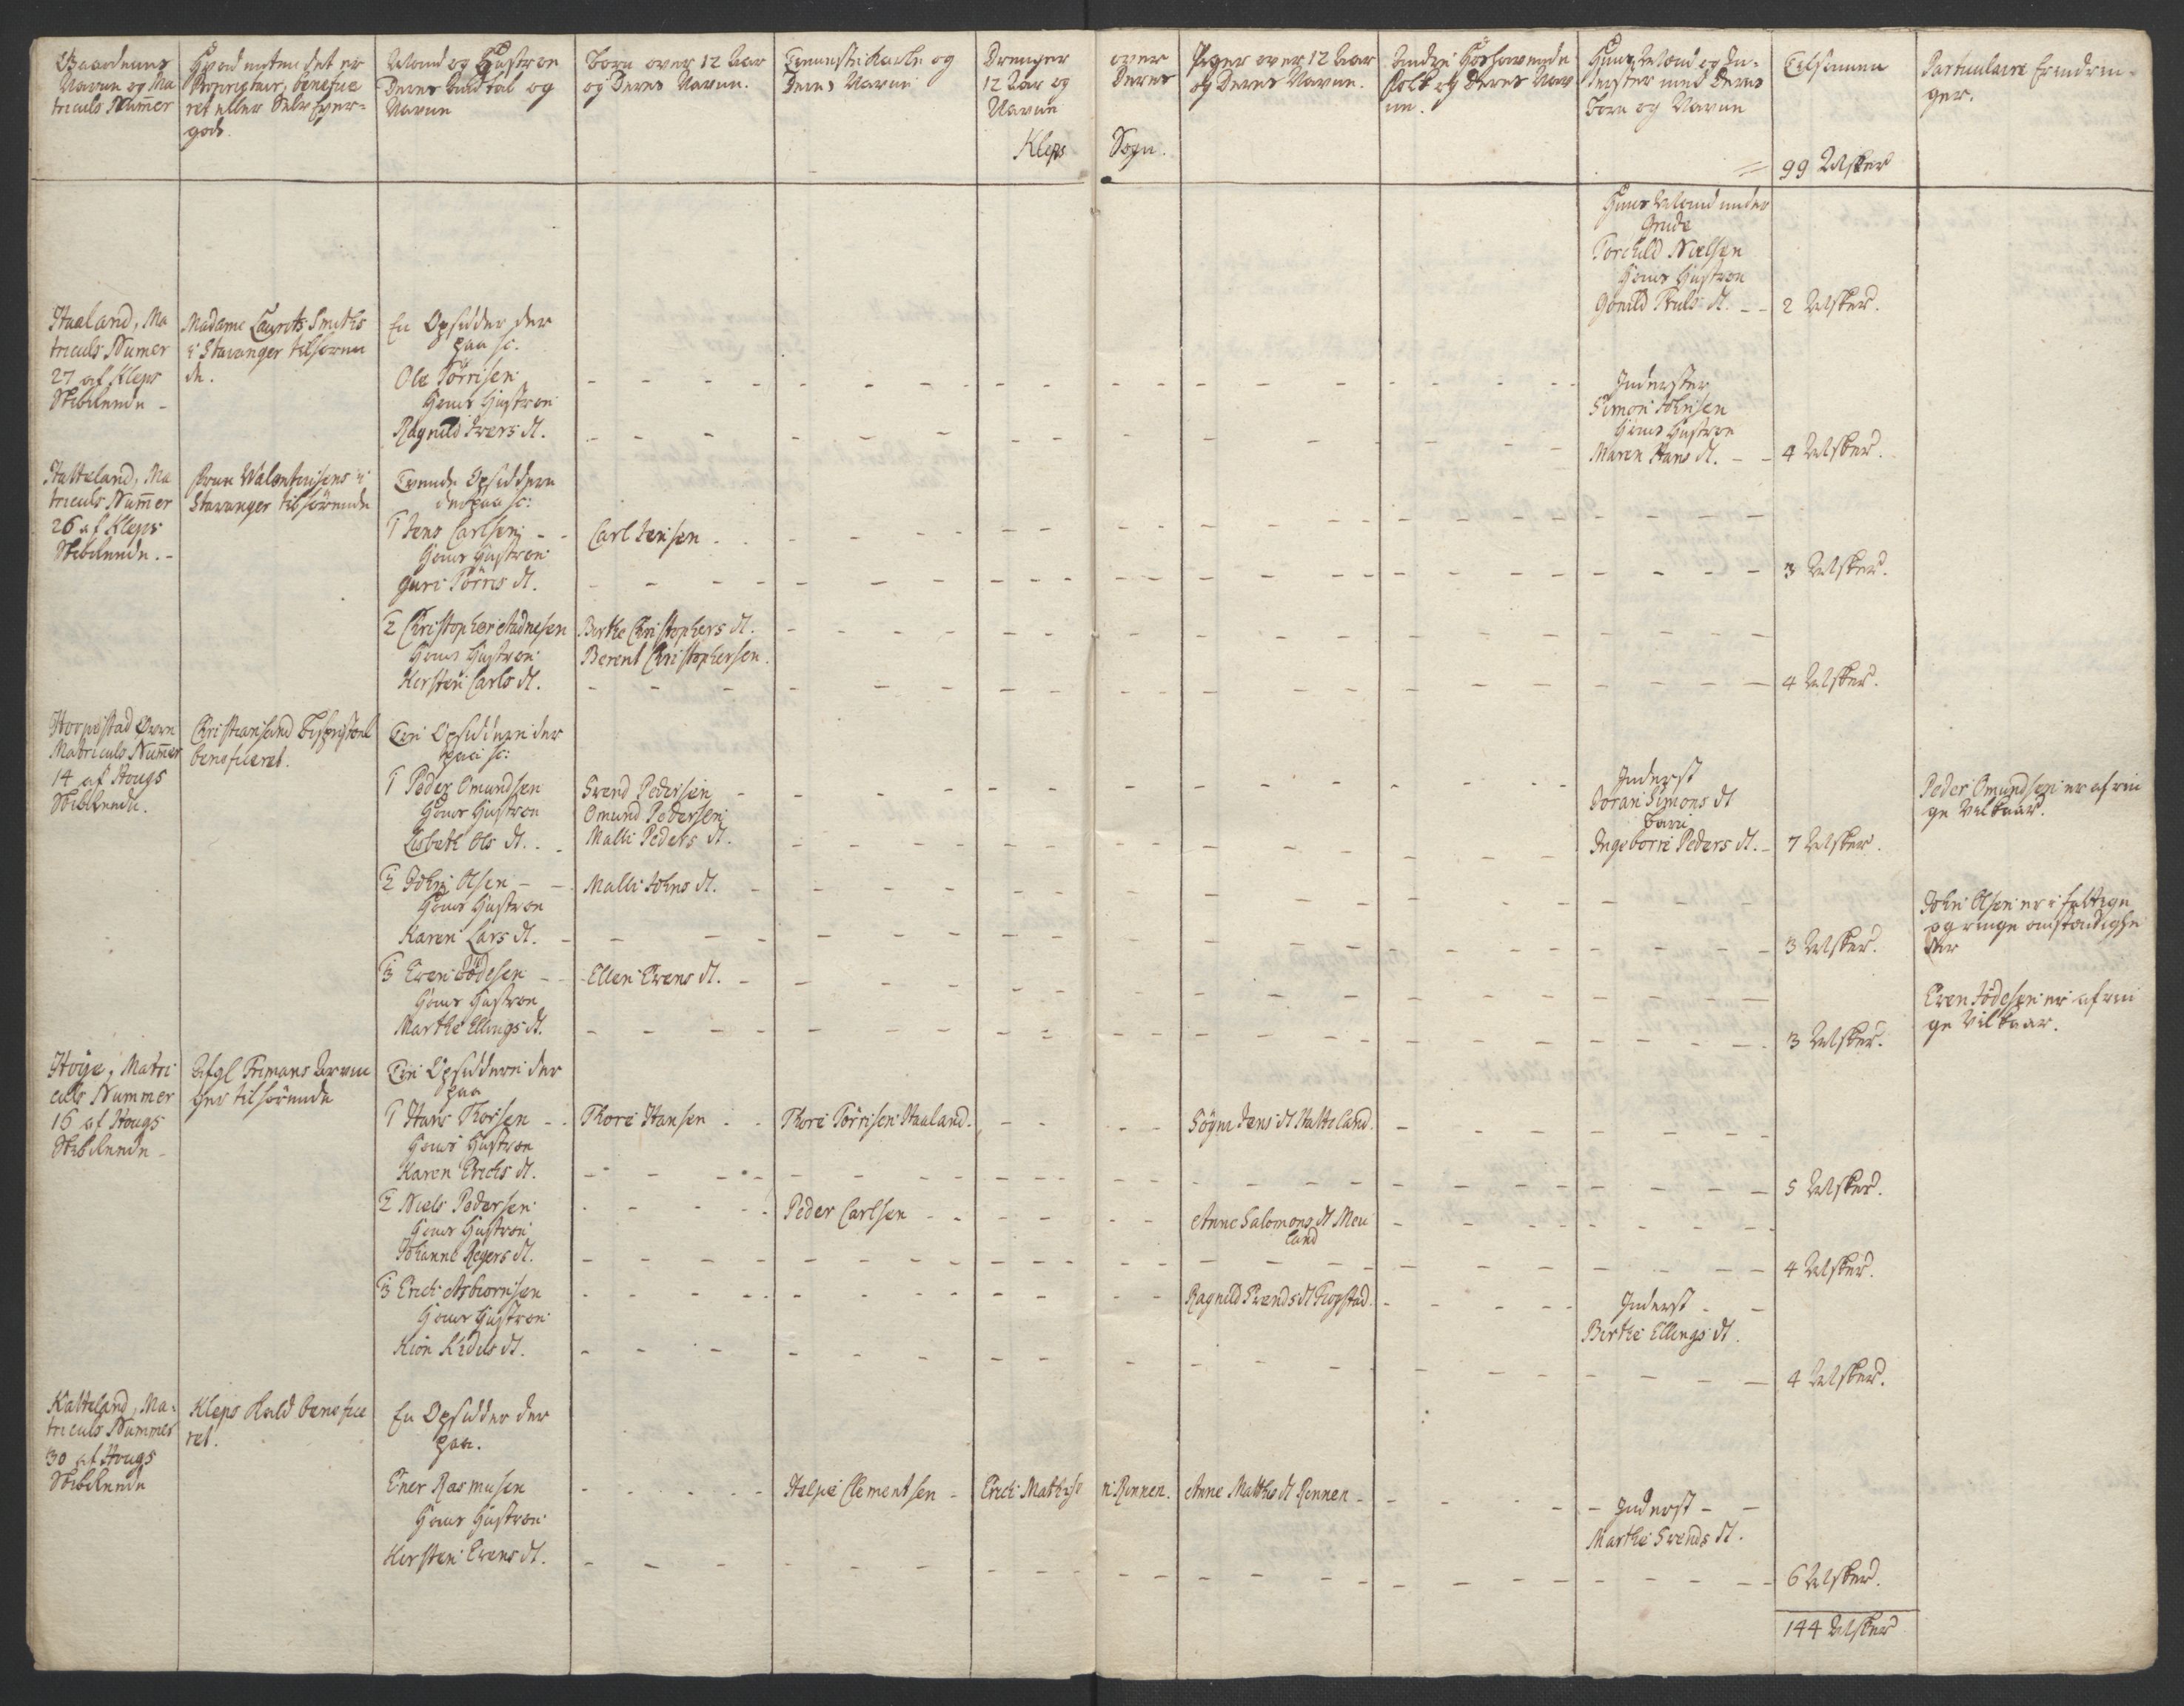 Gaardenes
Navne og Ma
triculs Numer
Hvad enten det er
Proprietair, Benefice
ret eller Selv Eyer-
gods.
Mand og Hustroe
Deres Antal og
Navne
Børn over 12 Aar
og Deres Navne.
Tieneste Karle og
Deres Navne
Drenger over
12 Aar og Deres
Navne
Piger over 12 Aar
og Deres Navne.
Andre Hos havende
Folk og Deres Nav
ne.
Huus Mænd og In-
derster med Deres
Børn og Navne
Tilsamen
Particulaire Erindrin-
ger.
Kleps Sogn.
99 Msker
Huus Mand under
Grude
Torchild Nielsen
Hans Hustroe
Gonild Truls dt. - - 2 Msker.
Haaland, Ma
triculs Numer
27 af Kleps
Skibrende -
Madame Laurits Smiths
i Stavanger tilhøren
de.
En Opsidder der
paa sc.
Ole Tørrisen
Hans Hustroe
Ragnild Ivers dt.
Inderster
Simon Johnsen
Hans Hustroe
Maren Hans dt. - - 4 Msker.
Hatteland, Ma
triculs Nummer
26 af Kleps
Skibrende. -
Frue Valentinsens i
Stavanger tilhørende
Tvende Opsiddere
derpaa sc:
1 Jens Carlsen - -
Hans Hustroe
Guri Tørris dt.
Carl Jensen
3 Msker.
2 Christopher Aadnesen
Hans Hustroe
Kirsten Carls dt.
Birthe Christophers dt.
Berent Christophersen.
4 Msker.
Horpestad Øvre
Matriculs Nummer
14 af Hougs
Skibrende.
Christiansand Bispestoel
beneficeret.
Tre Opsiddere der
paa sc:
1 Peder Omundsen
Hans Hustroe
Lisbeth Ols dt.
Svend Pedersen
Omund Pedersen
Malli Peders dt.
Inderst
Joran Simons dt
Barn
Ingeborre Peders dt. - 7 Msker.
Peder Omundsen er af rin
ge Vilkaar.
2 John Olsen - -
Hans Hustroe
Karen Lars dt.
Malli Johns dt.
3 Msker.
John Olsen er i fattige
og ringe omstændighe
der
3 Even Jødesen - -
Hans Hustroe
Marthe Ellings dt.
Ellen Evens dt.
3 Msker.
Even Jødesen er af rin
ge Vilkaar.
Høye, Matri
culs Nummer
16 af Hougs
Skibrende -
Afgl Frimans Arvin
ger tilhørende
Tre Opsiddere der
paa
1 Hans Thorsen - -
Hans Hustroe
Karen Erichs dt.
Thore Hansen
Thore Tørrisen Haaland.
Søgni Jens dt Hatteland.
5 Msker.
2 Niels Pedersen
Hans Hustroe
Johanne Reyers dt.
Peder Carlsen
Anne Salomons dt Meu
land
4 Msker.
3 Erich Asbiørnsen
Hans Hustroe
Kiøn Kidels dt.
Ragnild Svends dt Fuglstad
Inderst
Birthe Ellings dt.
4 Msker.
Katteland, Ma-
triculs Nummer
30 af Hougs
Skibrende
Kleps Kald benefice
ret.
En Opsidder der
paa.
Ener Rasmusen
Hans Hustroe
Kirsten Evens dt.
Helgie Clementsen -
Erich Mathise n Rennen.
Anne Matthis dt Rennen -
Inderst
Marthe Svends dt.
6 Msker.
144 Msker